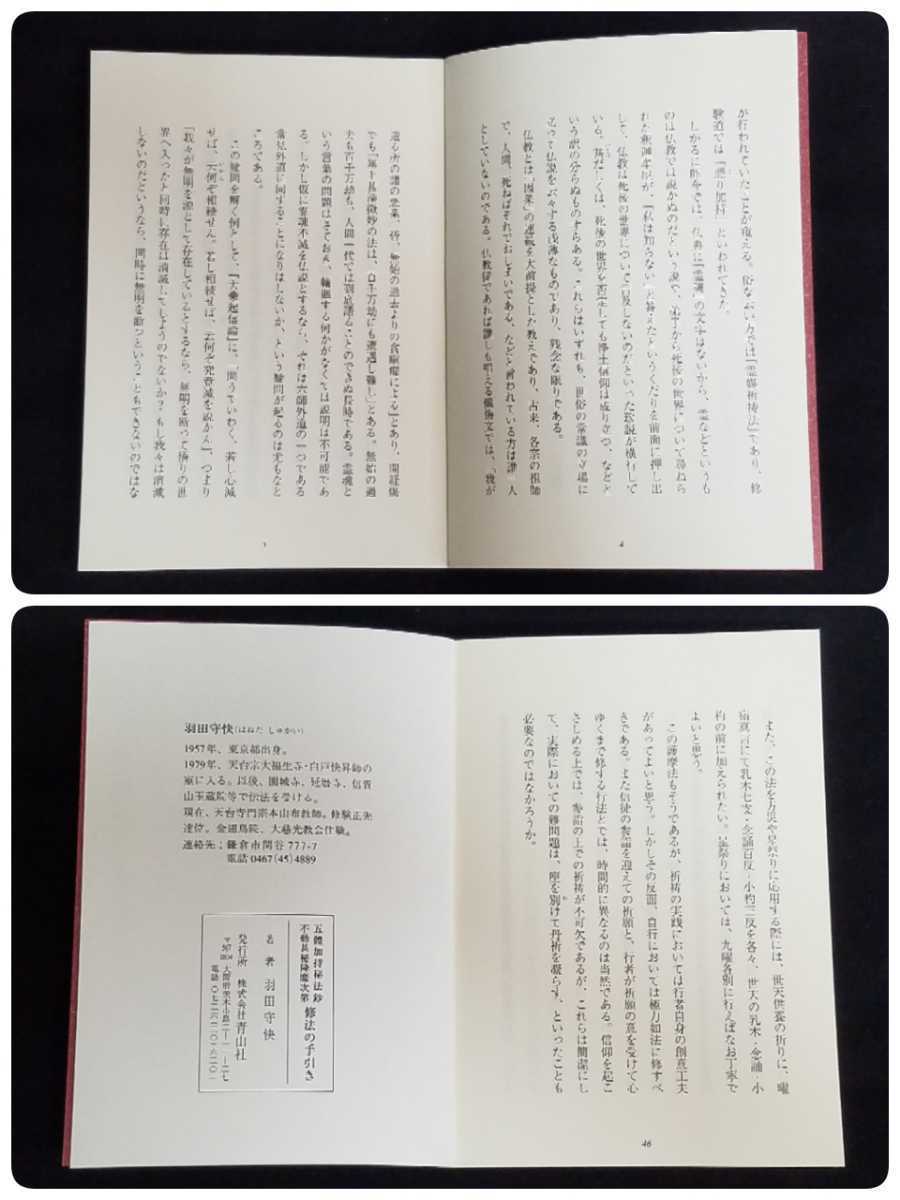 が行われていたことが窺える。俗なぶい方では『霊媒祈祷法』であり、修
験道では『憑り加持』といわれてきた。
しかるに昨今では、仏典に『霊魂』の文字はないから、霊などというも
のは仏教では説かぬのだという説や、弟子から死後の世界について尋ねら
れた釈迦牟尼が、「私は知らない」と答えたというくだりを前面に押し出
して、仏教は死後の世界について言及しないのだといった珍説が横行して
いる。甚だしくは、死後の世界を否定しても浄土信仰は成り立つ、などと
いう訳の分らぬものすらある。これらはいずれも、世俗の常識の立場に
立って仏説をぶ々する浅薄なものであり、残念な限りである。
仏教とは『因果』の連鎖を大前提とした教えであり、古来、各宗の祖師
で、人間、死ねばそれでおしまいである、などと言われている方は誰一人
としていないのである。仏教徒であれば誰しも唱える懺悔文では、「我が
4
造る所の諸の悪業、皆、無始の過去よりの貪瞋癡による」とあり、開経偈
でも「無上甚深微妙の法は、百千万劫にも遭遇し難し」とある。無始の過
去も百千万劫も、人間一代では到底語ることのできぬ長時である。霊魂と
いう言葉の問題はさておき、輪廻する何かがなくては説明は不可能であ
る。しかし仮に霊魂不滅を仏説とするなら、それは六師外道の一つである
常見外道に同することになりはしないか、という疑問が起るのは尤もなと
ころである。
この疑問を解く例として、『大乗起信論』に、「問うていわく、若し心滅
せば、云何ぞ相続せん。若し相続せば、云何ぞ究竟滅を説かん」、つまり
「我々が無明を源として存在しているとするなら、無明を断って悟りの世
界へ入ったと同時に存在は消滅してしまうのでないか？もし我々は消滅
しないのだというなら、同時に無明を断つということもできないのではな
羽田守快（はねだ しゅかい）
1957年、東京都出身。
1979年、天台宗大福生寺・白戸快昇師の
室に入る。以後、園城寺、延暦寺、信貴
山玉蔵院等で伝法を受ける。
現在、天台寺門宗本山布教師。修験正先
達位。金翅鳥院、大慈光教会住職。
連絡先；鎌倉市関谷777-7
電話 0467(45)4889
五體加持秘法鈔
不動長秘降魔次第 修法の手引き
著者 羽田守快
発行所 株式会社青山社
また、この法を方災や星祭りに応用する際には、世天供養の折りに、曜
宿真言にて乳木七支・念誦百反・小杓三反を各々、世天の乳木・念誦・小
杓の前に加えられたい。星祭りにおいては、九曜各別に行えばなお丁寧で
よいと思う。
この護摩法もそうであるが、祈祷の実践においては行者自身の創意工夫
があってよいと思う。しかしその反面、自行においては極力如法に修すべ
きである。また信徒の参詣を迎えての祈願と、行者が祈願の意を受けて心
ゆくまで修する行法とでは、時間的に異なるのは当然である。信仰を起こ
さしめる上では、参詣の上での祈祷が不可欠であるが、これらは簡潔にし
て、実際においての難問題は、座を別けて丹祈を凝らす、といったことも
必要なのではなかろうか。
46